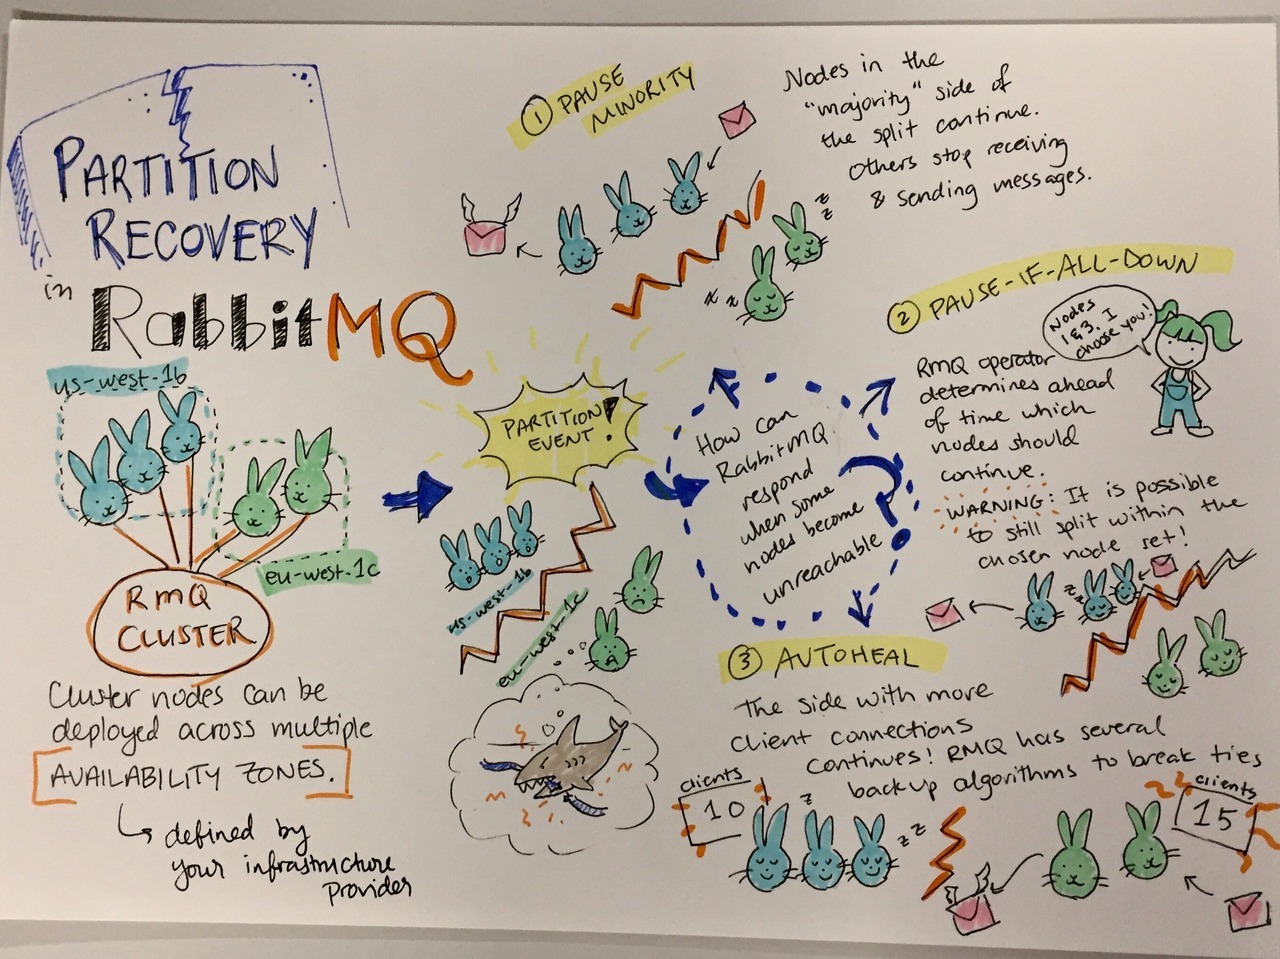 PARTITION
RECOVERY
in
RabbitMQ
us-west-1b
eu-west-1c
RMQ
CLUSTER
Cluster nodes can be
deployed across multiple
AVAILABILITY ZONES.
defined by
your infrastructure
provider
PARTITION
EVENT!
us-west-1b
eu-west-1c
How can
RabbitMQ
respond
when some
nodes become
unreachable
?
1 PAUSE
MINORITY
Nodes in the
"majority" side of
the split continue.
Others stop receiving
& sending messages.
z
z
z z
2 PAUSE-IF-ALL-DOWN
Nodes
1 & 3, I
choose you!
RMQ operator
determines ahead
of time which
nodes should
continue.
WARNING: It is possible
to still split within the
chosen node set!
z
z
3 AUTOHEAL
The side with more
client connections
continues! RMQ has several
backup algorithms to break ties
clients
10
z
z z
clients
15